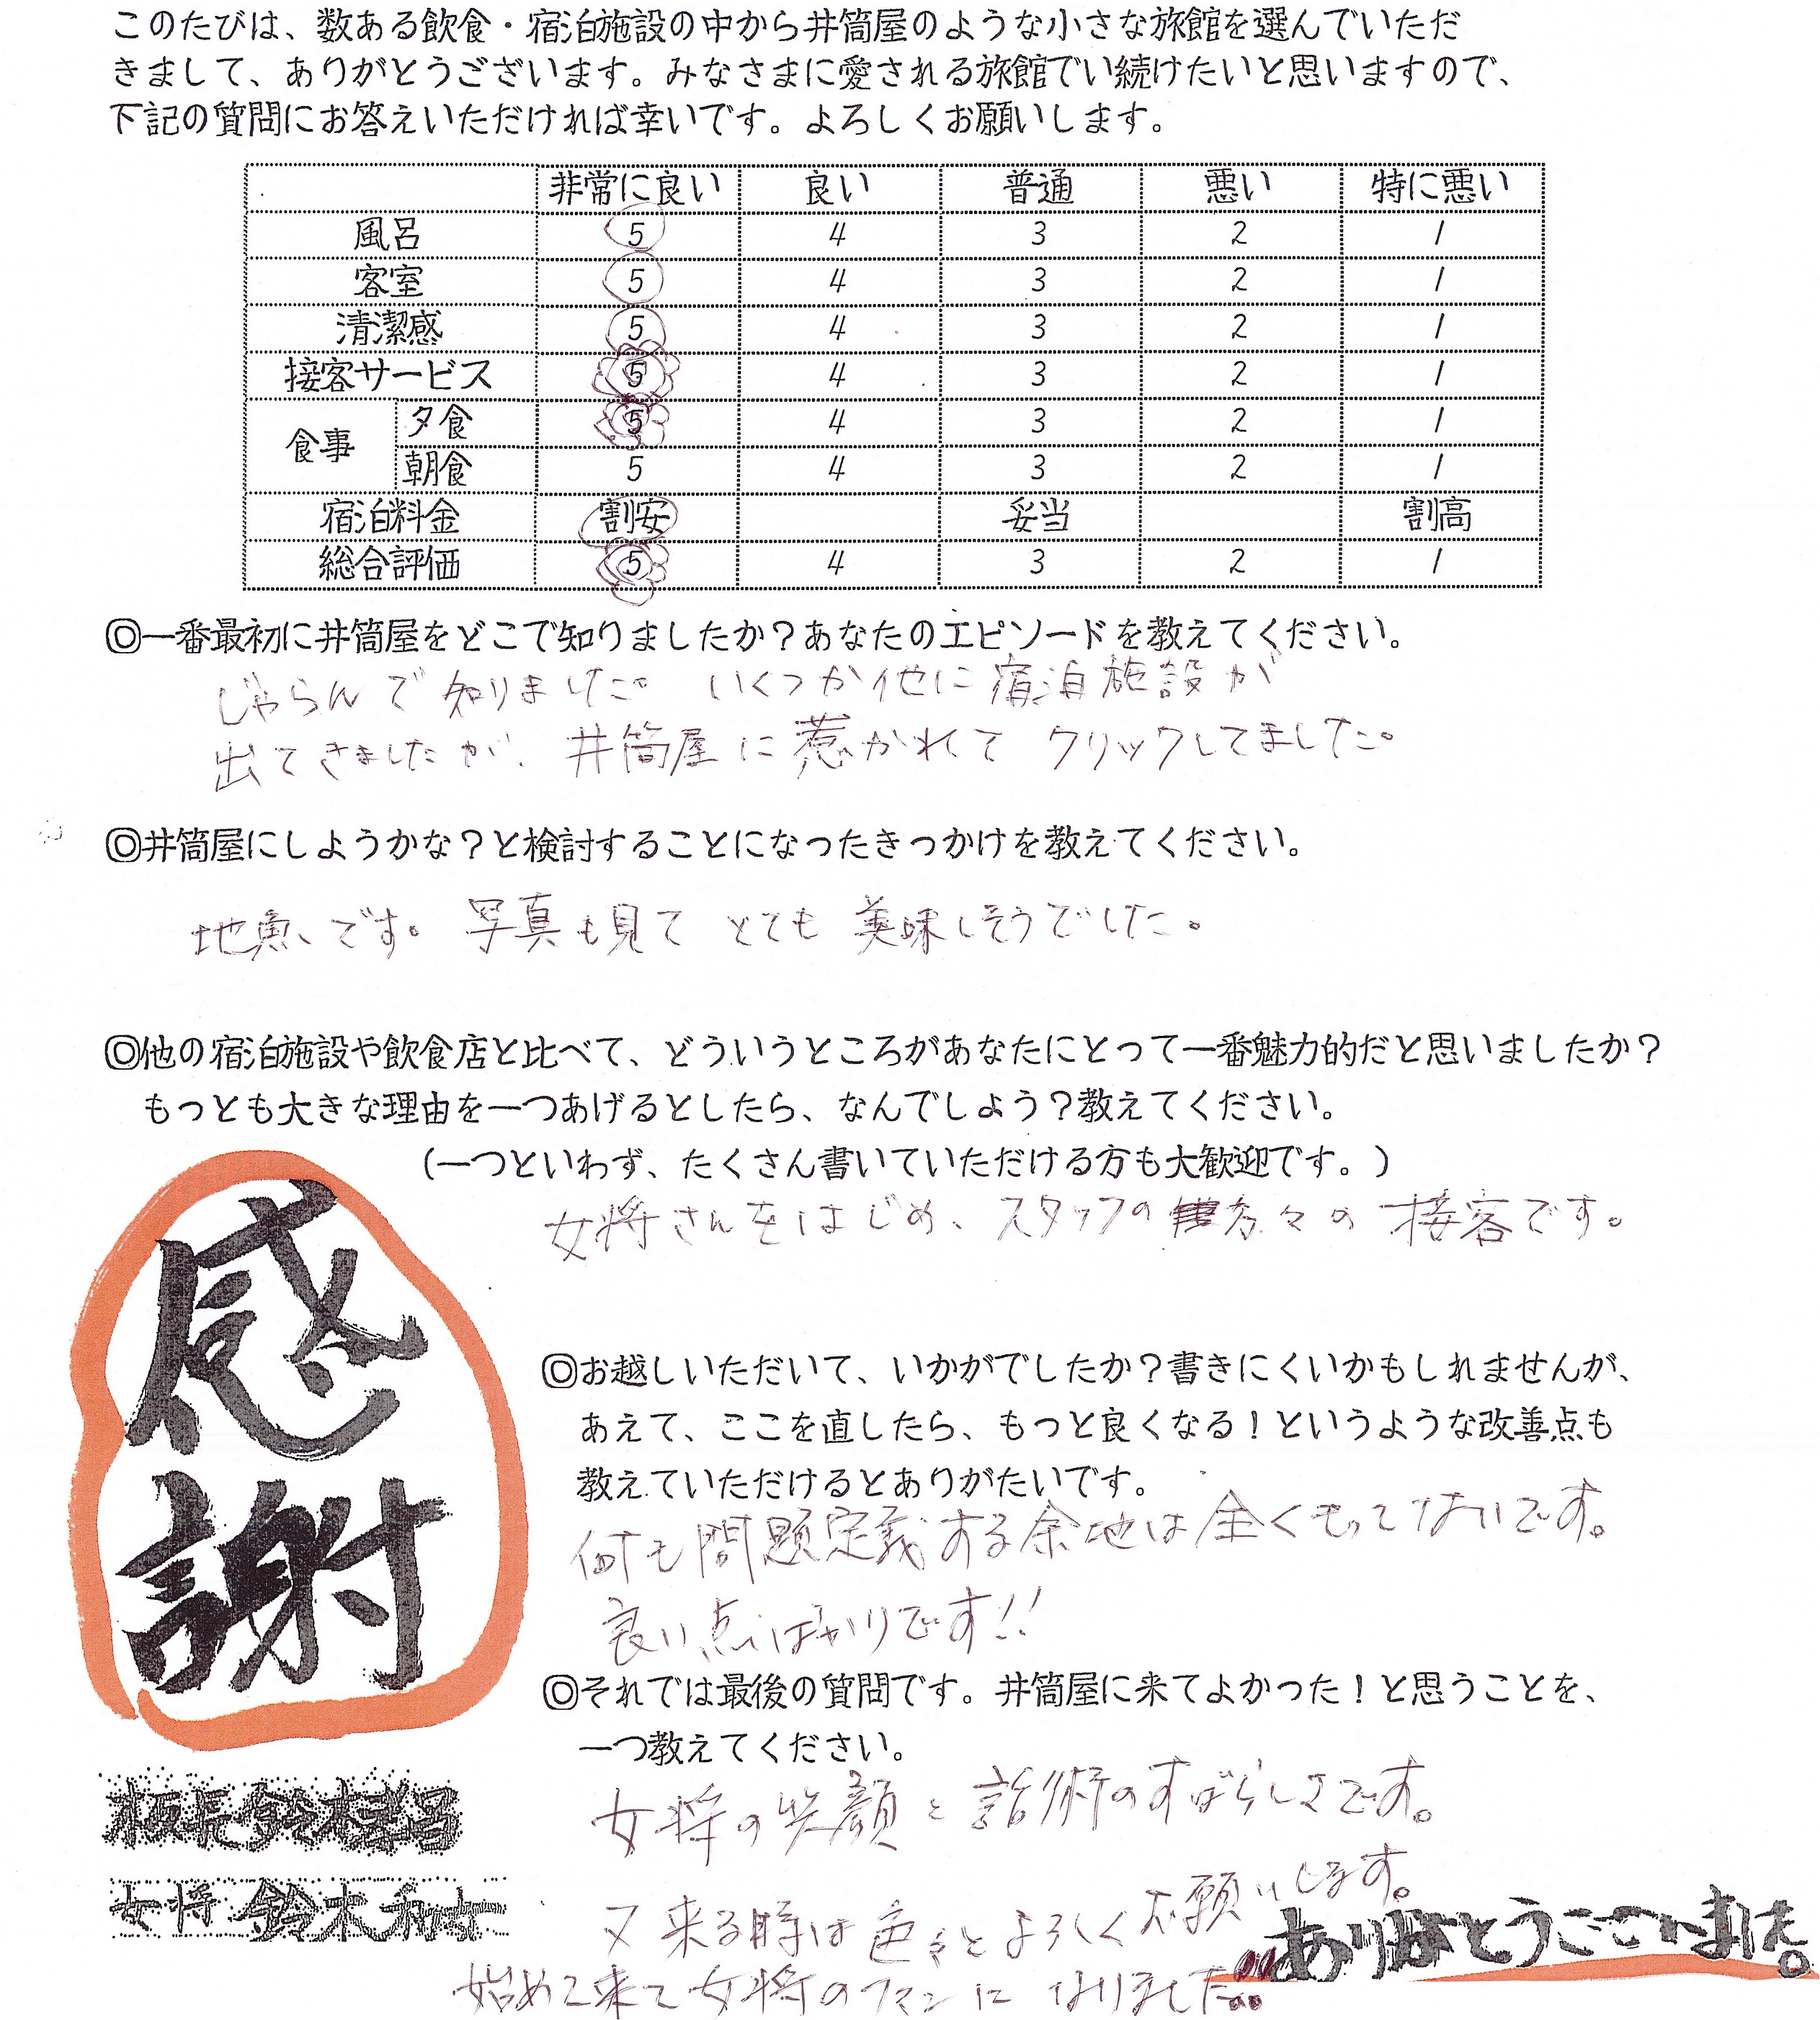 このたびは、数ある飲食・宿泊施設の中から井筒屋のような小さな旅館を選んでいただ
きまして、ありがとうございます。みなさまに愛される旅館でい続けたいと思いますので、
下記の質問にお答えいただければ幸いです。よろしくお願いします。
非常に良い 良い 普通 悪い 特に悪い
風呂 5 4 3 2 1
客室 5 4 3 2 1
清潔感 5 4 3 2 1
接客サービス 5 4 3 2 1
食事 夕食 5 4 3 2 1
朝食 5 4 3 2 1
宿泊料金 割安 妥当 割高
総合評価 5 4 3 2 1
◎一番最初に井筒屋をどこで知りましたか？あなたのエピソードを教えてください。
じゃらんで知りました。いくつか他に宿泊施設が
出てきましたが、井筒屋に惹かれてクリックしてました。
◎井筒屋にしようかな？と検討することになったきっかけを教えてください。
地魚です。写真も見てとても美味しそうでした。
◎他の宿泊施設や飲食店と比べて、どういうところがあなたにとって一番魅力的だと思いましたか？
もっとも大きな理由を一つあげるとしたら、なんでしょう？教えてください。
（一つといわず、たくさん書いていただける方も大歓迎です。）
女将さんをはじめ、スタッフの方々の接客です。
◎お越しいただいて、いかがでしたか？書きにくいかもしれませんが、
あえて、ここを直したら、もっと良くなる！というような改善点も
教えていただけるとありがたいです。
何も問題定義する余地は全くもってないです。
良い点ばかりです!!
◎それでは最後の質問です。井筒屋に来てよかった！と思うことを、
一つ教えてください。
女将の笑顔と話術のすばらしさです。
又来る時は色々とよろしくお願いします。
始めて来て女将のファンになりました。
感謝
板長 鈴木
女将 鈴木和女
ありがとうございました。